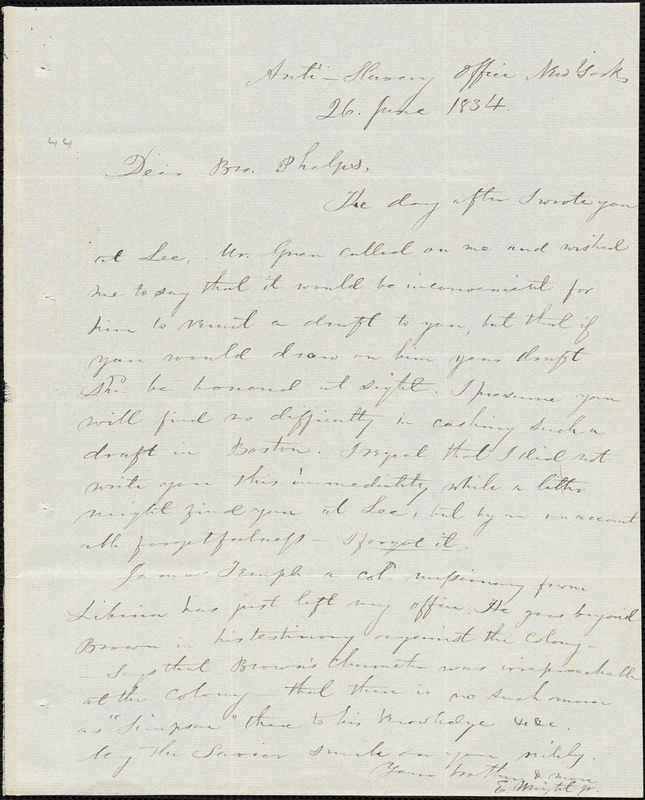 Anti-Slavery Office New York
26. June 1834.
44
Dear Bro. Phelps,
The day after I wrote you
at Lee, Mr. Green called on me and wished
me to say that it would be inconvenient for
him to remit a draft to you, but that if
you would draw on him your draft
shd. be honored at sight. I presume you
will find no difficulty in cashing such a
draft in Boston. I regret that I did not
write you this immediately while a letter
might find you at Lee, but by an unaccount
able forgetfulness – I forgot it.
James Temple a cold. missionary from
Liberia has just left my office. He goes beyond
Brown in his testimony against the Colony –
– Says that Brown's character was irreproachable
at the Colony – that there is no such man
as "Simpson" there to his knowledge &c &c.
May the Savior smile on you richly.
Your brother & more
E. Wright jr.